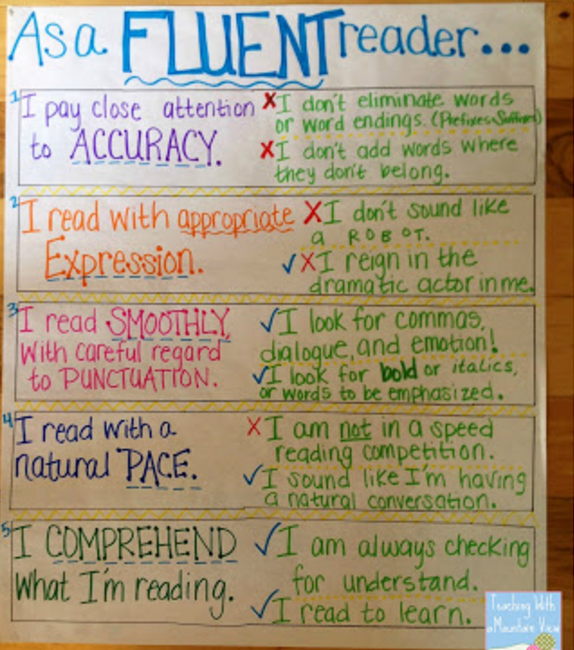 As a FLUENT reader...
1 I pay close attention
to ACCURACY.
X I don't eliminate words
or word endings. (Prefixes & Suffixes)
X I don't add words where
they don't belong.
2 I read with appropriate
Expression.
X I don't sound like
a ROBOT.
✓X I reign in the
dramatic actor in me.
3 I read SMOOTHLY,
with careful regard
to PUNCTUATION.
✓ I look for commas,
dialogue, and emotion!
✓ I look for bold or italics,
or words to be emphasized.
4 I read with a
natural PACE.
X I am not in a speed
reading competition.
✓ I sound like I'm having
a natural conversation.
5 I COMPREHEND
what I'm reading.
✓ I am always checking
for understand.
✓ I read to learn.
Teaching With
a Mountain View